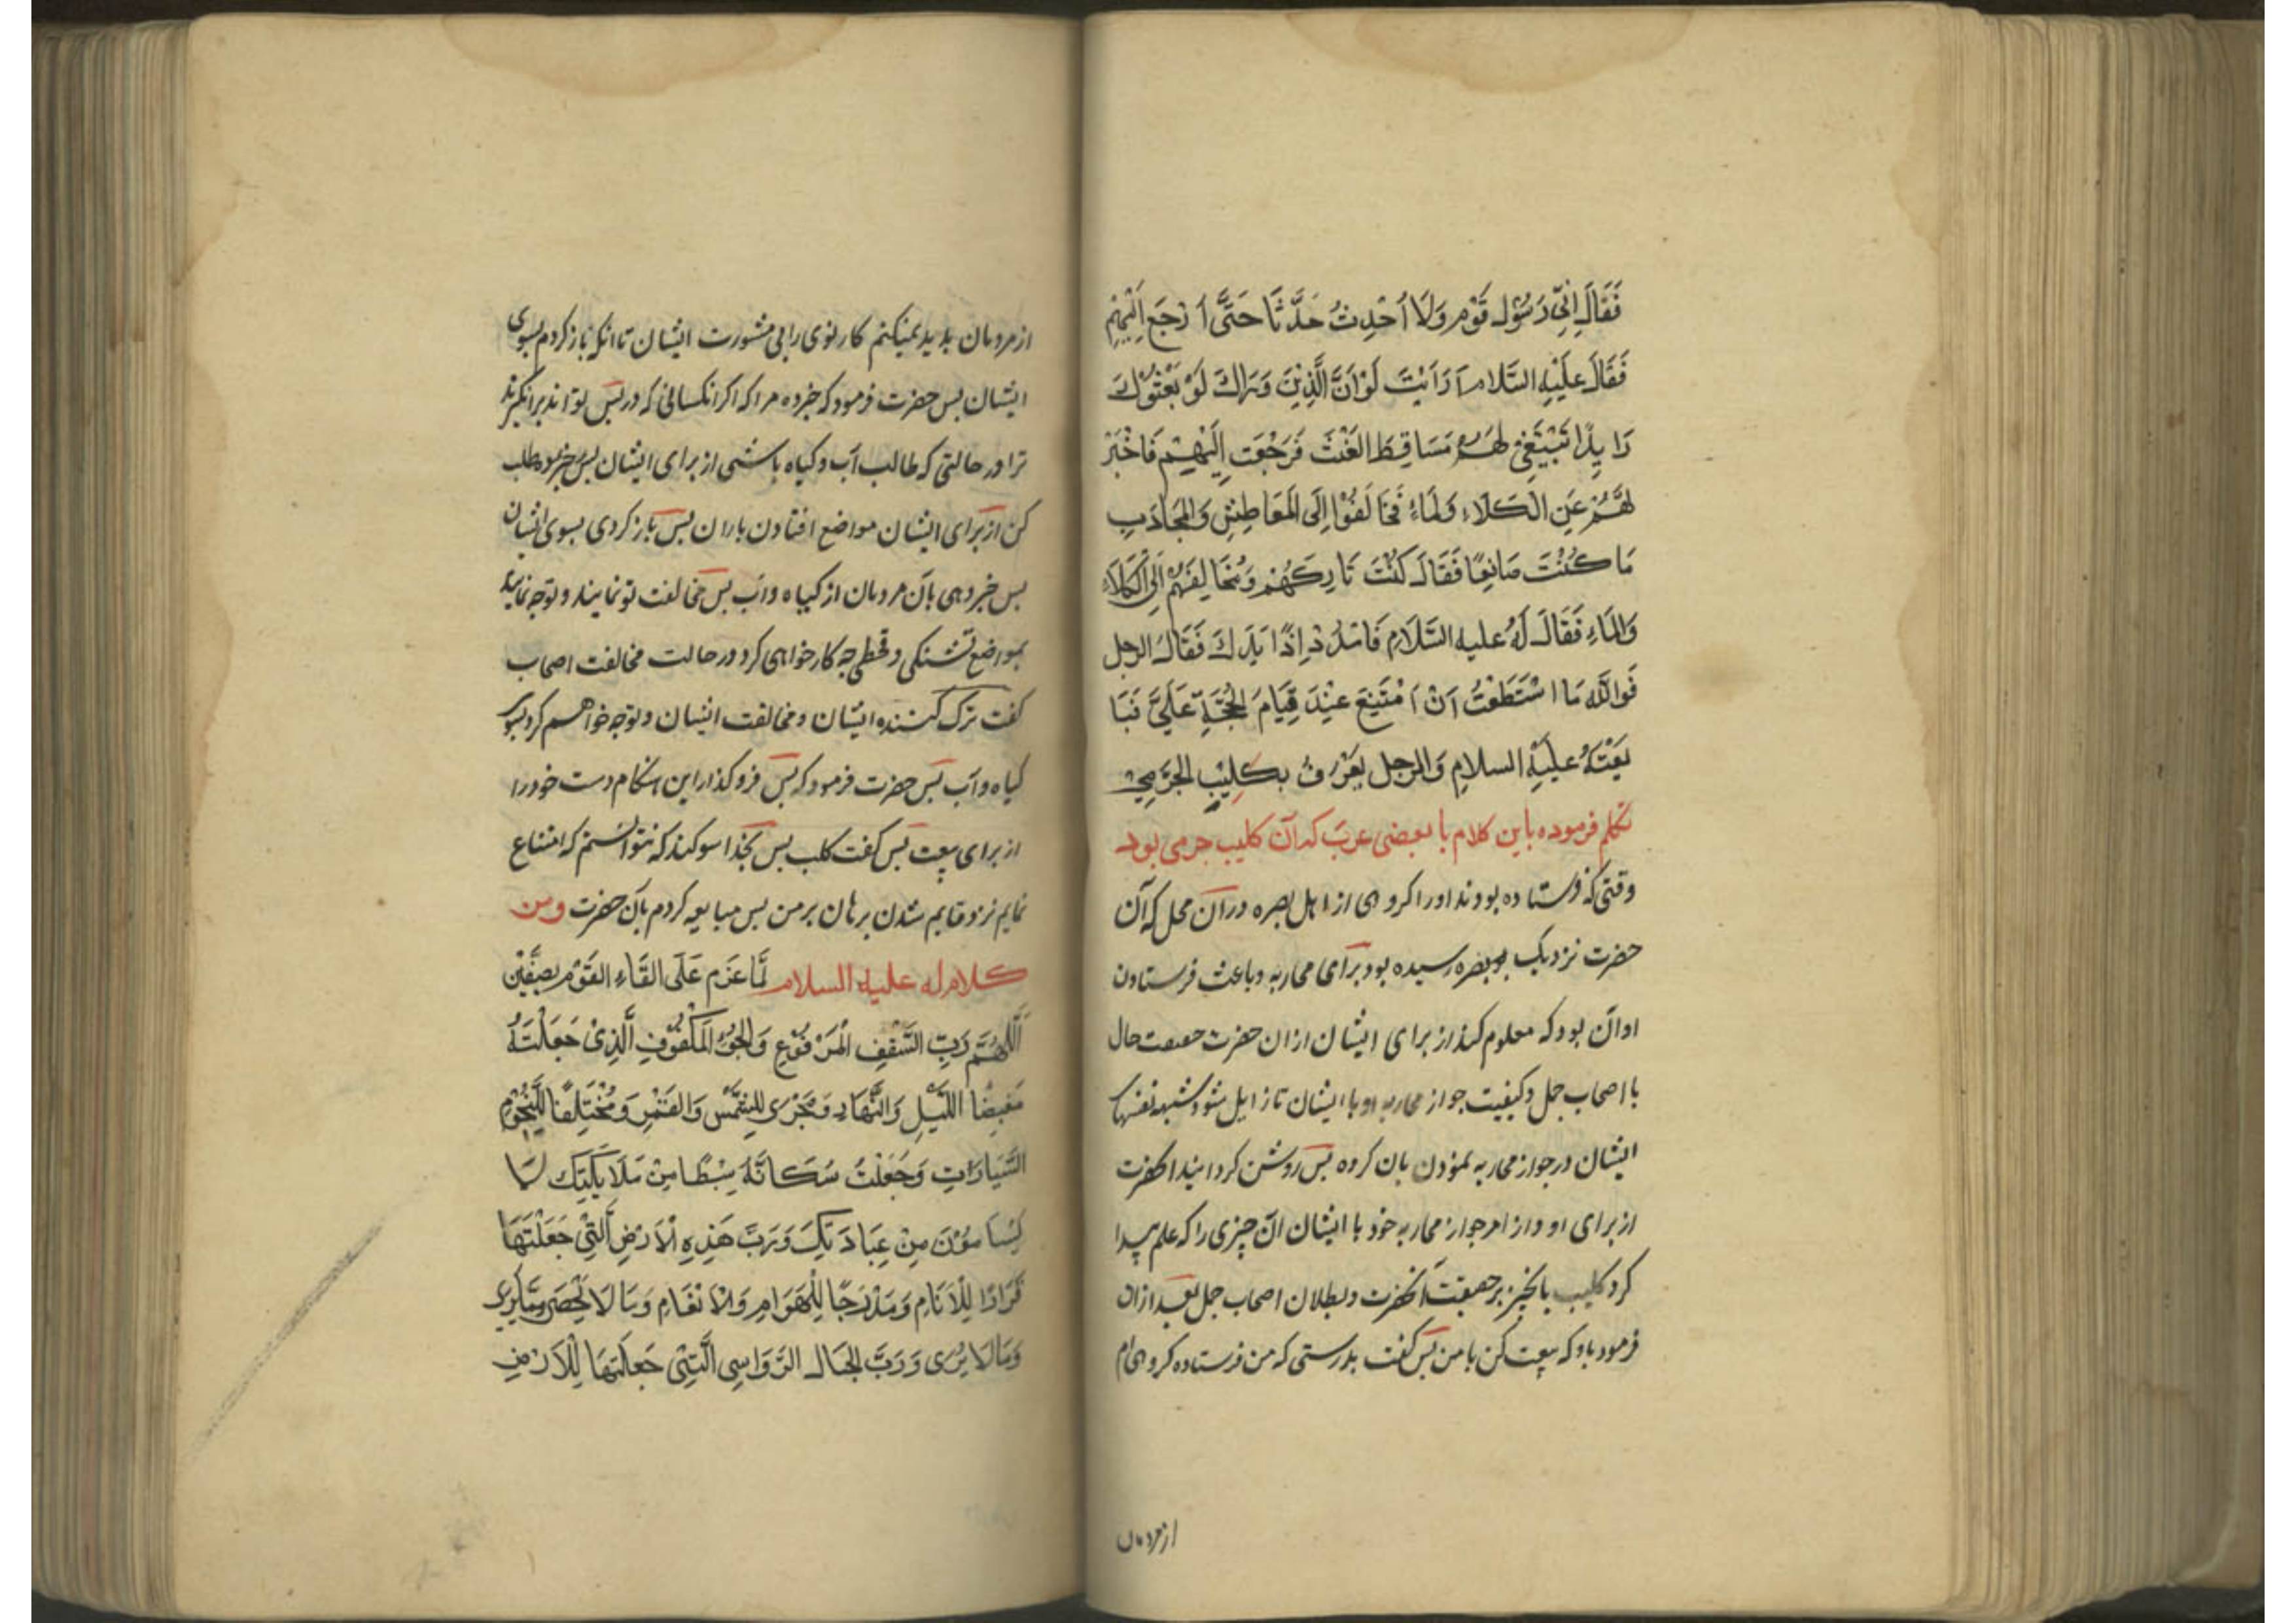 فَقَالَ اِنِّی رَسُوْلُ قَوْمٍ وَلَا اُحْدِثُ حَدَّثًا حَتَّی اَرْجِعَ اِلَیْهِمْ
فَقَالَ عَلَیْهِ السَّلام اَرَاَیْتَ لَوْ اَنَّ الَّذِیْنَ وَرَاکَ لَوْ بَعَثُوْکَ
رَایِدًا تَبْتَغِیْ لَهُمْ مَسَاقِطَ الغَیْثَ فَرَجَعْتَ اِلَیْهِمْ فَاَخْبَرْ
لَهُمْ عَنِ الْکَلَاءِ وَلمَاءِ فَخَالَفُوْا اِلَی المَعَاطِشِ وَالمَجَادَبِ
مَا کُنْتَ صَانِعًا فَقَالَ کُنْتُ تَارِکَهُمْ وَمُخَالِفَهُمْ اِلَی الْکَلَاءِ
وَالمَاءِ فَقَالَ لَهُ علیه السَّلَامِ فَامْدُدْ اِذًا یَدَکَ فَقَالَ الرجل
فَوَاللّٰهِ مَا اسْتَطَعْتُ اَنْ اَمْتَنِعَ عِنْدَ قِیَامَ الحُجَّةِ عَلَیَّ فَبَا
یَعْتُهُ علیَهِ السلامِ وَالرجل یُعْرَفُ بکُلِیْبِ الجَرْمِیّ
تکلم فرموده باین کلام با بعضی عرب که آن کلیب جرمی بود
وقتی که فرستاده بودند او را کروهی از اهل بصره در آن محل که آن
حضرت نزدیک بو بصره رسیده بود برای محاربه و باعث فرستادن
او آن بود که معلوم کند از برای ایشان از ان حضرت حقیقت حال
با اصحاب جمل و کیفیت جواز محاربه او با ایشان تا زایل شود شبهه نفسهای
ایشان در جواز محاربه نمودن بان کروه بس روشن کردانید انحضرت
از برای او و از امر جواز محاربه خود با ایشان ان چیزی را که علم پیدا
کرد کلیب بانخیز بر حقیقت انحضرت و بطلان اصحاب جمل بعد از ان
فرمود باو که بیعت کن با من بس کفت بدرستی که من فرستاده کروهی ام
از مردمان
از مردمان بدید نمیکنم کار نوی را بی مشورت ایشان تا انکه باز کردم بسوی
ایشان بس حضرت فرمود که خبر ده مرا که اکر انکسانی که در پس تواند برانکیزند
ترا در حالتی که طالب آب و کیاه باشی از برای ایشان بس خبر طلب
کن از برای ایشان مواضع افتادن باران بس باز کردی بسوی ایشان
بس خبر دهی بان مردمان از کیاه و آب بس مخالفت تو نمایند و توجه نمایند
بمواضع تشنکی و قحطی چه کار خواهی کرد در حالت مخالفت اصحاب
کفت ترک کننده ایشان و مخالفت ایشان و توجه خواهم کرد بسوی
کیاه و آب بس حضرت فرمود که بس فرو کذار این هنکام دست خود را
از برای بیعت بس کفت کلب بس بخذا سوکند که نتوانستم که امتناع
نمایم نزد قایم شدن برهان بر من بس مبایعه کردم بان حضرت ومن
کلام له علیه السلام لَمَّا عَزَم عَلَی القَاءِ القَوْمِ بصِفِّیْن
اَللّٰهُمَّ رَبِّ السَّقْفِ الْمَرْفُوْعِ وَالجَوِّ المَکْفُوْفِ الَّذِیْ جَعَلْتَهُ
مَغِیضًا اللَّیْلِ وَالنَّهَارِ وَمَجْرَی لِلشَّمْسِ وَالقَمَرِ وَمُخْتَلِفًا لِلنُّجُوْمِ
السَّیَارَاتِ وَجَعَلْتُ سُکَّانَهُ سِبْطًا مِنْ مَلَایِکَتِکَ لَا
یَسْامُوْنَ مِنْ عِبَادَتِکَ وَرَبَّ هَذِهِ الْاَرْضِ الَّتِیْ جَعَلْتَهَا
قَرَارًا لِلْاَنَامِ وَمَدْرَجًا لِلْهَوَامِ وَالْاَنْعَامِ وَمَا لَا یُحْصَی مِمَّا یُرَی
وَمَا لَا یُرَی وَرَبَّ الجبَالِ الرَّوَاسِی الَّتِیْ جَعَلْتَهَا لِلْاَرْضِ